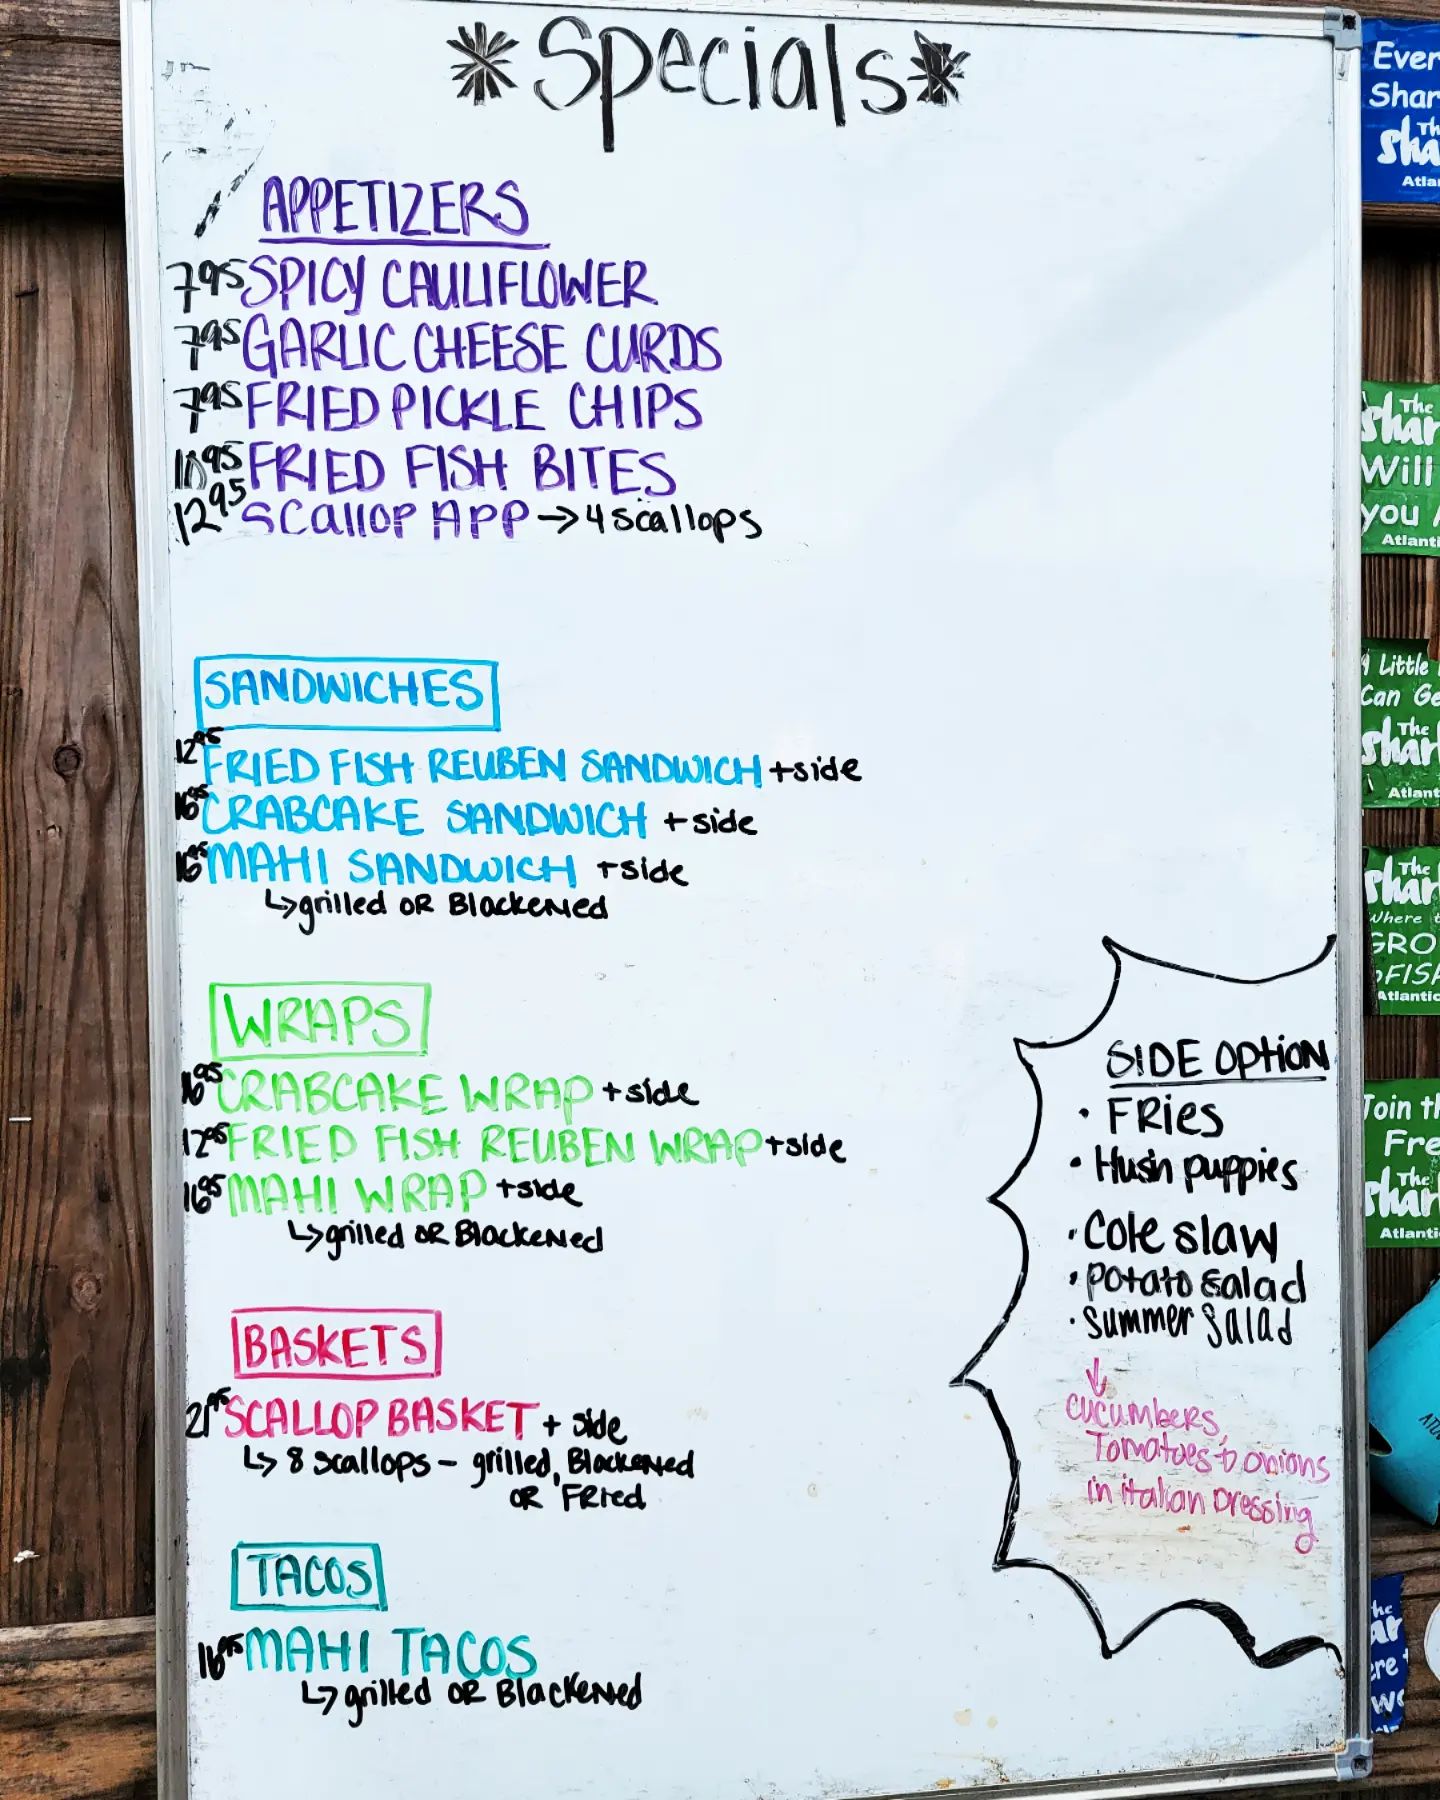 *Specials*
APPETIZERS
7.95 SPICY CAULIFLOWER
7.95 GARLIC CHEESE CURDS
7.95 FRIED PICKLE CHIPS
10.95 FRIED FISH BITES
12.95 SCALLOP APP → 4 scallops
SANDWICHES
12.95 FRIED FISH REUBEN SANDWICH +side
16.95 CRABCAKE SANDWICH +side
16.95 MAHI SANDWICH +side
↳ grilled OR Blackened
WRAPS
16.95 CRABCAKE WRAP +side
12.95 FRIED FISH REUBEN WRAP +side
16.95 MAHI WRAP +side
↳ grilled OR Blackened
BASKETS
21.95 SCALLOP BASKET + side
↳ 8 scallops - grilled, Blackened
OR Fried
TACOS
16.95 MAHI TACOS
↳ grilled OR Blackened
SIDE OPTION
• FRies
• Hush puppies
• Cole slaw
• potato salad
• summer salad
↓
CUCUMBERS,
Tomatoes & onions
in italian Dressing
Ever
Shar
Th
Sha
Atla
The
Shar
Will
you
Atlanti
A Little
Can Ge
The
Shar
Atlant
The
Shar
Where t
GRO
FISH
Atlantic
Join th
Fre
The
Shar
Atlanti